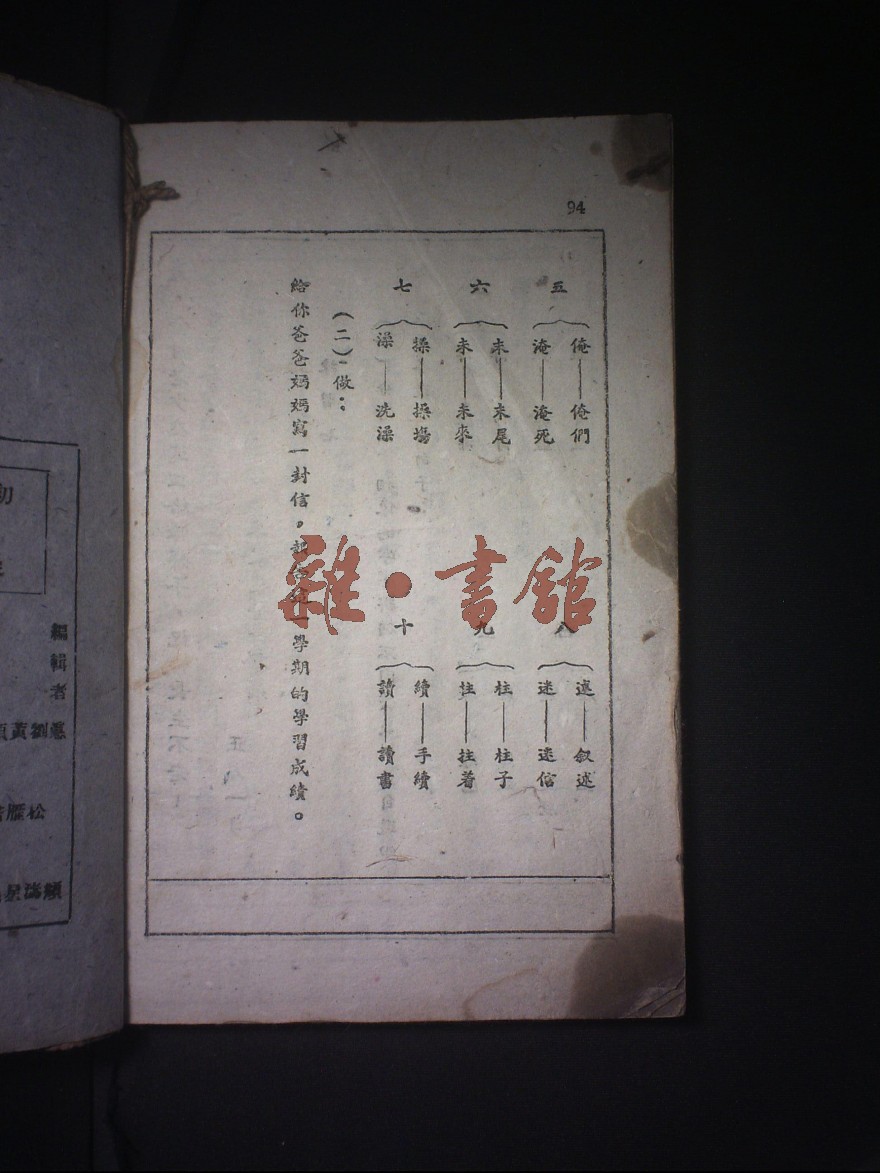 94
五
俺——俺們
淹——淹死
六
末——末尾
未——未來
七
操——操場
澡——洗澡
八
述——叙述
迷——迷信
九
柱——柱子
拄——拄着
十
續——手續
讀——讀書
(二)做：
給你爸爸媽媽寫一封信，報告這一學期的學習成績。
雜·書館
編輯者
劉黃
松雁